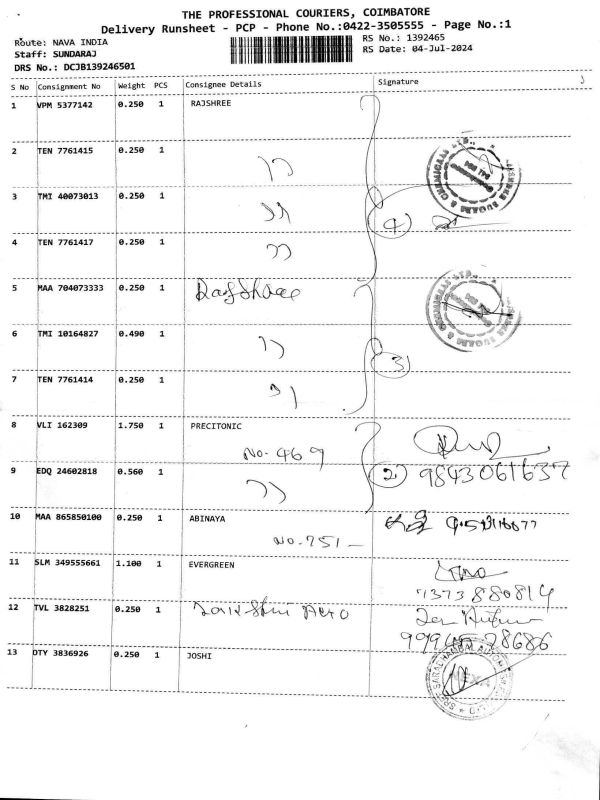 THE PROFESSIONAL COURIERS, COIMBATORE
Delivery Runsheet - PCP - Phone No.:0422-3505555 - Page No.:1
Route: NAVA INDIA
RS No.: 1392465
Staff: SUNDARAJ
RS Date: 04-Jul-2024
DRS No.: DCJB139246501
S No Consignment No Weight PCS Consignee Details Signature
1 VPM 5377142 0.250 1 RAJSHREE
2 TEN 7761415 0.250 1 ״
3 TMI 40073013 0.250 1 ״ 4)
4 TEN 7761417 0.250 1 ״
5 MAA 704073333 0.250 1 RajShree
6 TMI 10164827 0.490 1 ״ 3)
7 TEN 7761414 0.250 1 ״
8 VLI 162309 1.750 1 PRECITONIC
No-469
9 EDQ 24602818 0.560 1 ״ 2) 9843061637
10 MAA 865850100 0.250 1 ABINAYA
No-751-
11 SLM 349555661 1.100 1 EVERGREEN
7373880814
12 TVL 3828251 0.250 1
9994528686
13 DTY 3836926 0.250 1 JOSHI